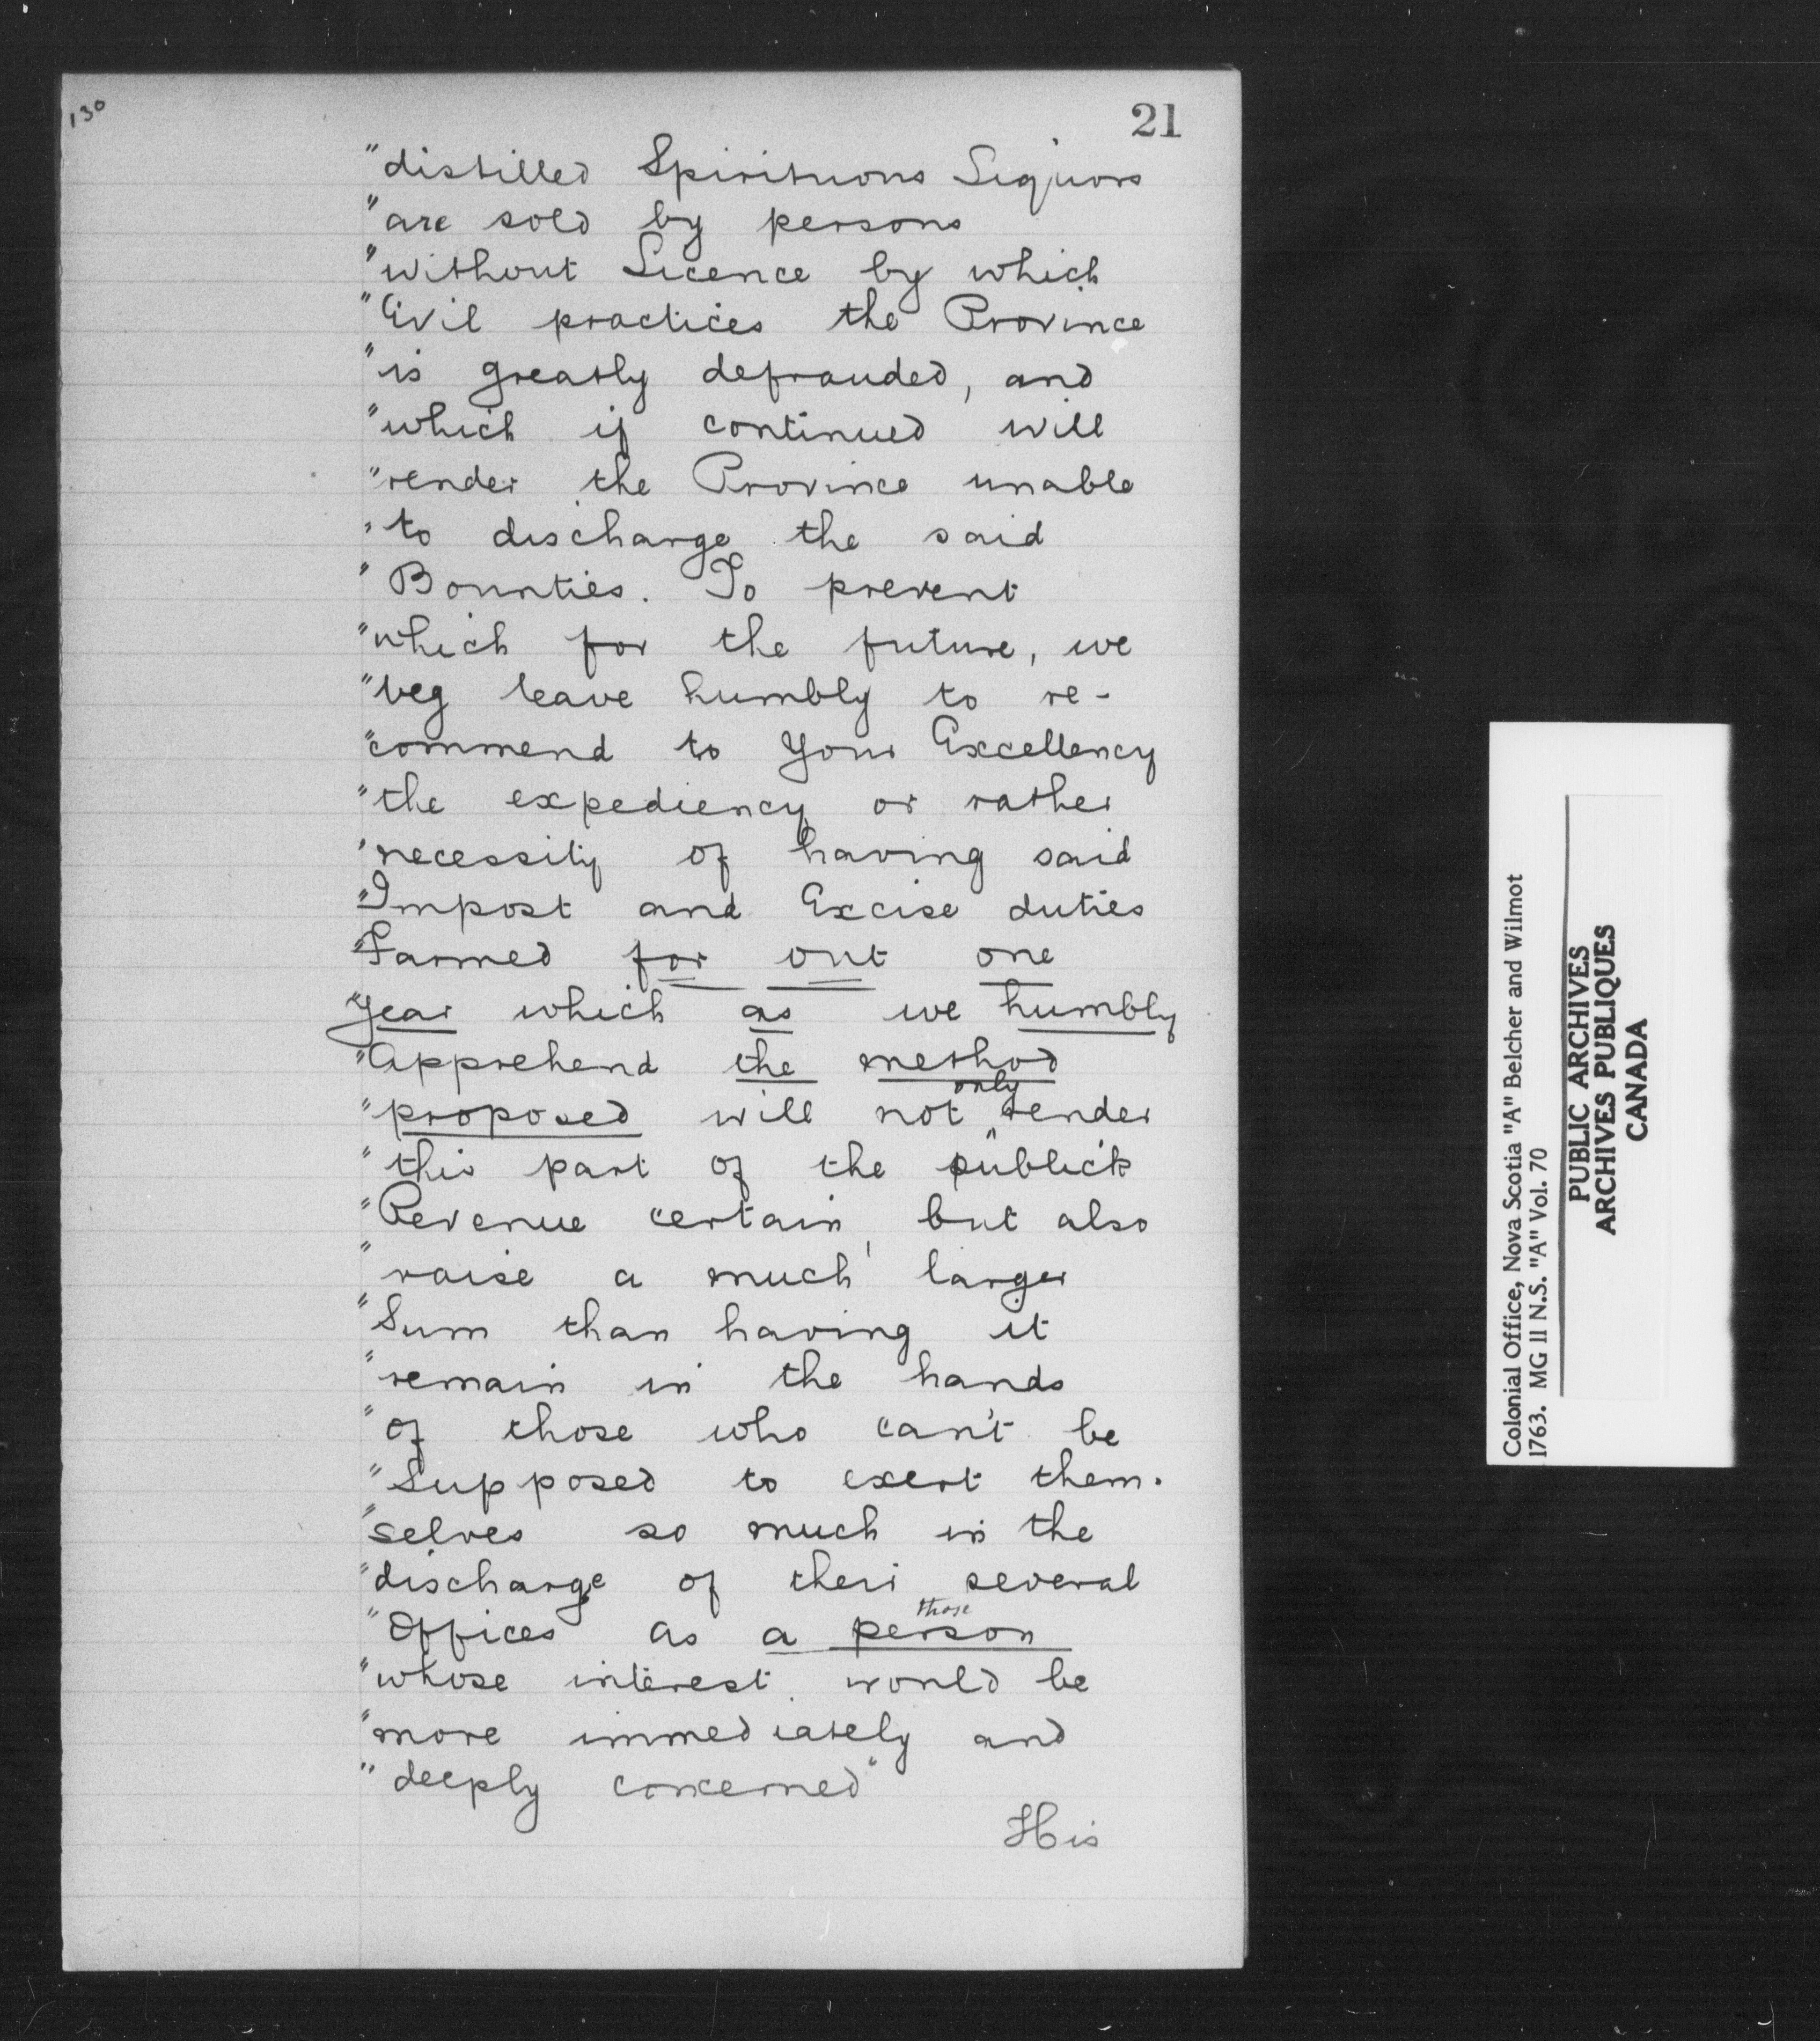 130
21
"distilled Spirituous Liquors
"are sold by persons
"without Licence by which
"Evil practices the Province
"is greatly defrauded, and
"which if continued will
"render the Province unable
"to discharge the said
"Bounties. To prevent
"which for the future, we
"beg leave humbly to re-
"commend to Your Excellency
"the expediency or rather
"necessity of having said
"Impost and Excise duties
"Farmed for out one
"year which as we humbly
"Apprehend the method
"proposed will not only render
"this part of the publick
"Revenue certain, but also
"raise a much larger
"Sum than having it
"remain in the hands
"of those who can't be
"Supposed to exert them-
"selves so much in the
"discharge of their several
"Offices as a person those
"whose interest would be
"more immediately and
"deeply concerned"
His
Colonial Office, Nova Scotia "A" Belcher and Wilmot
1763. MG II N.S. "A" Vol. 70
PUBLIC ARCHIVES
ARCHIVES PUBLIQUES
CANADA